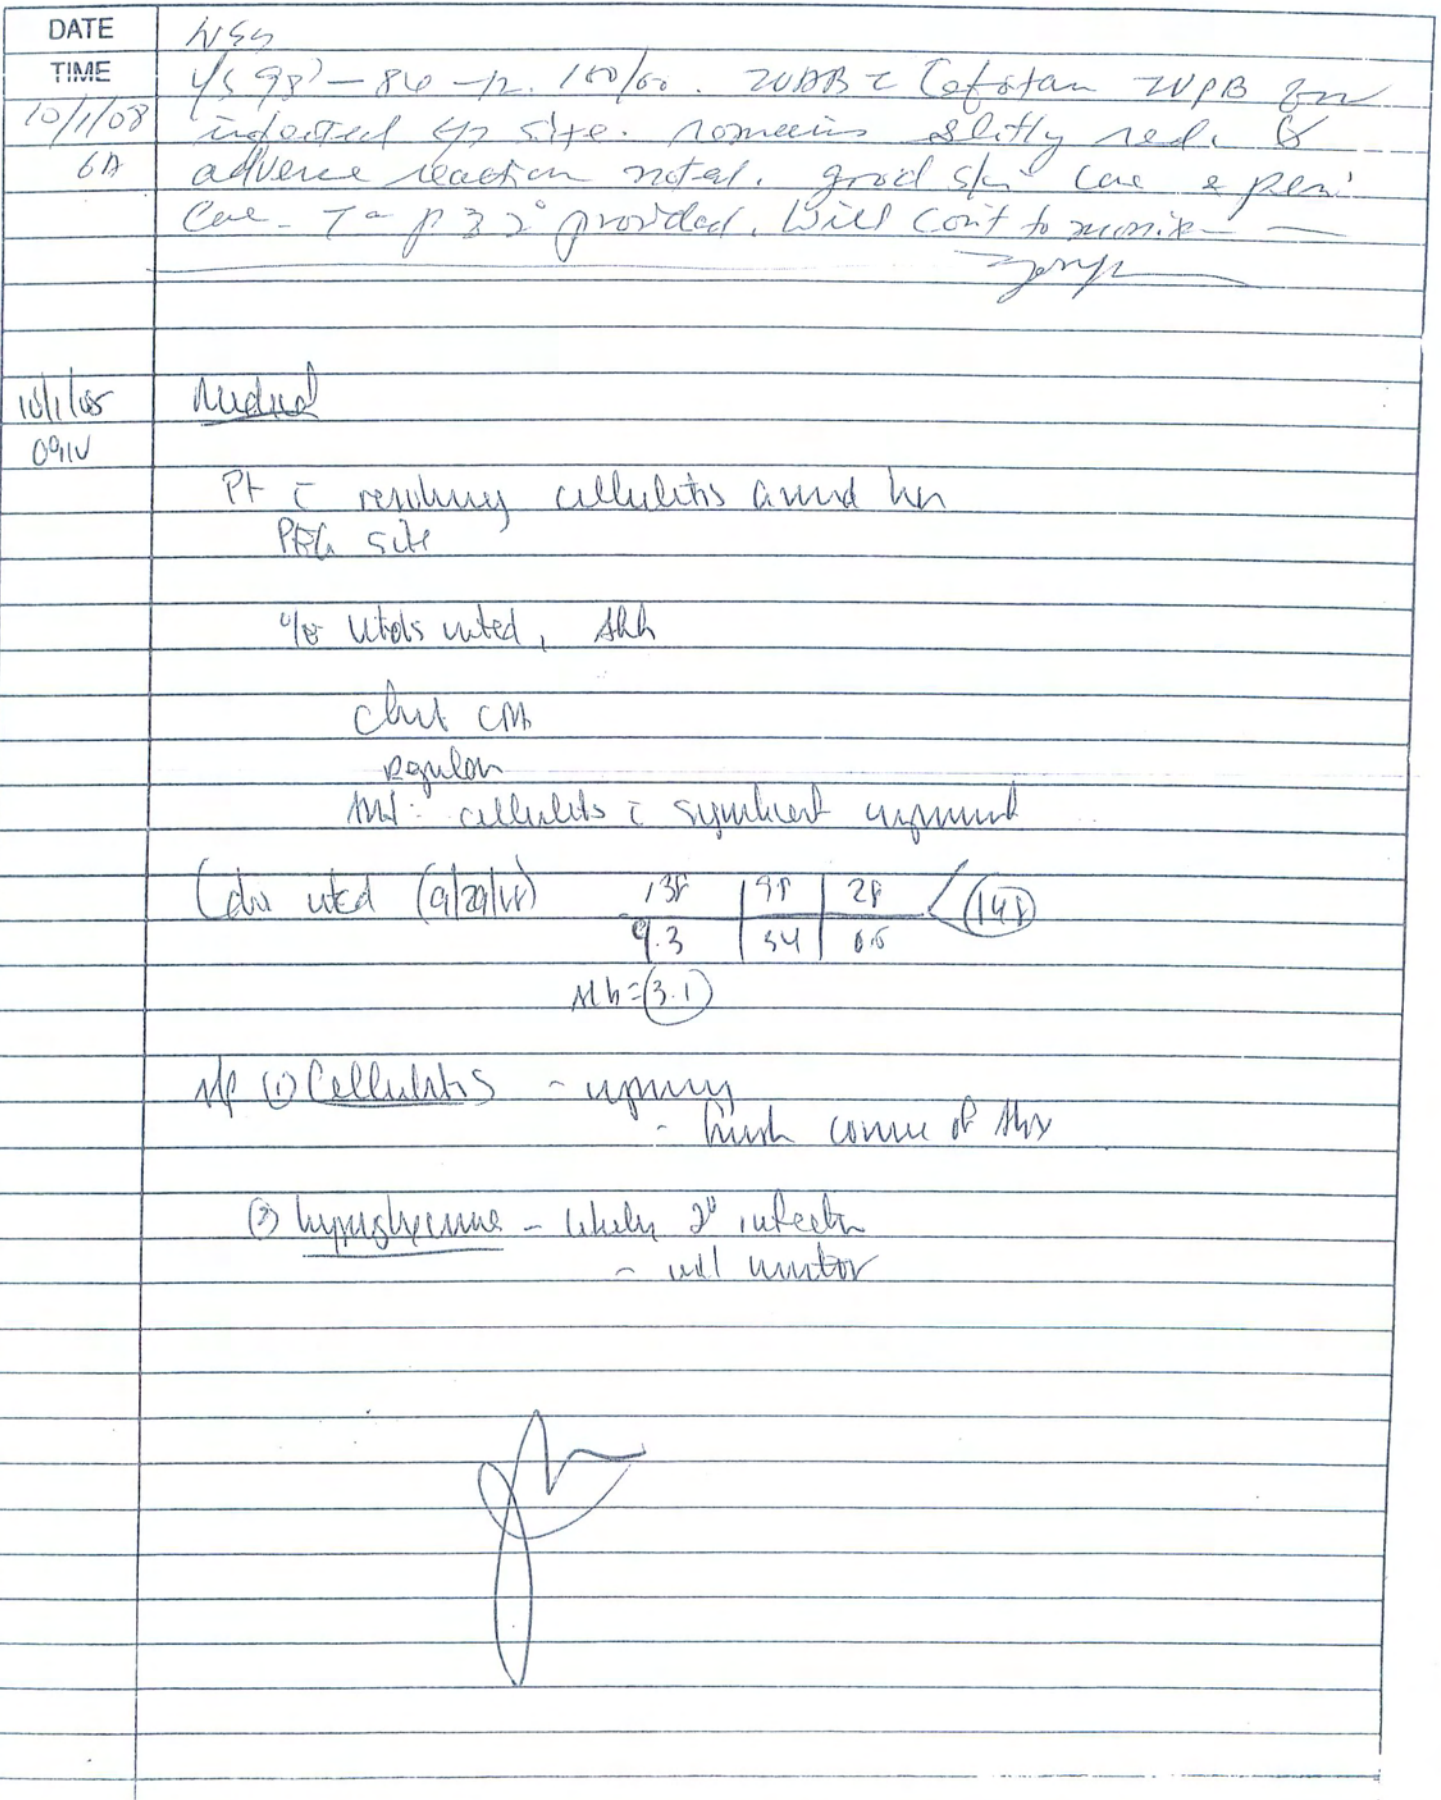 DATE
TIME
NSG
10/1/08
6A
V/S 98² - 86 - 12. 100/60. IVABB c̄ Cefotan IVPB for
infected GT site. remains slitly red. Ø
adverse reaction noted. good skin care & peri
care - T & P q 2° provided. Will con't to monitor
10/1/08
Medical
Pt c̄ resolving cellulitis around her
PEG site
O/E Vitals noted,
chest CTA
regular
Abd: cellulitis c̄ significant improvement
Labs noted (9/29/08) 138 98 28 148
9.3 34 0.6
Alb = 3.1
A/P (1) Cellulitis - improving
- finish course of Abx
(2) hyperglycemia - likely 2° infection
- will monitor